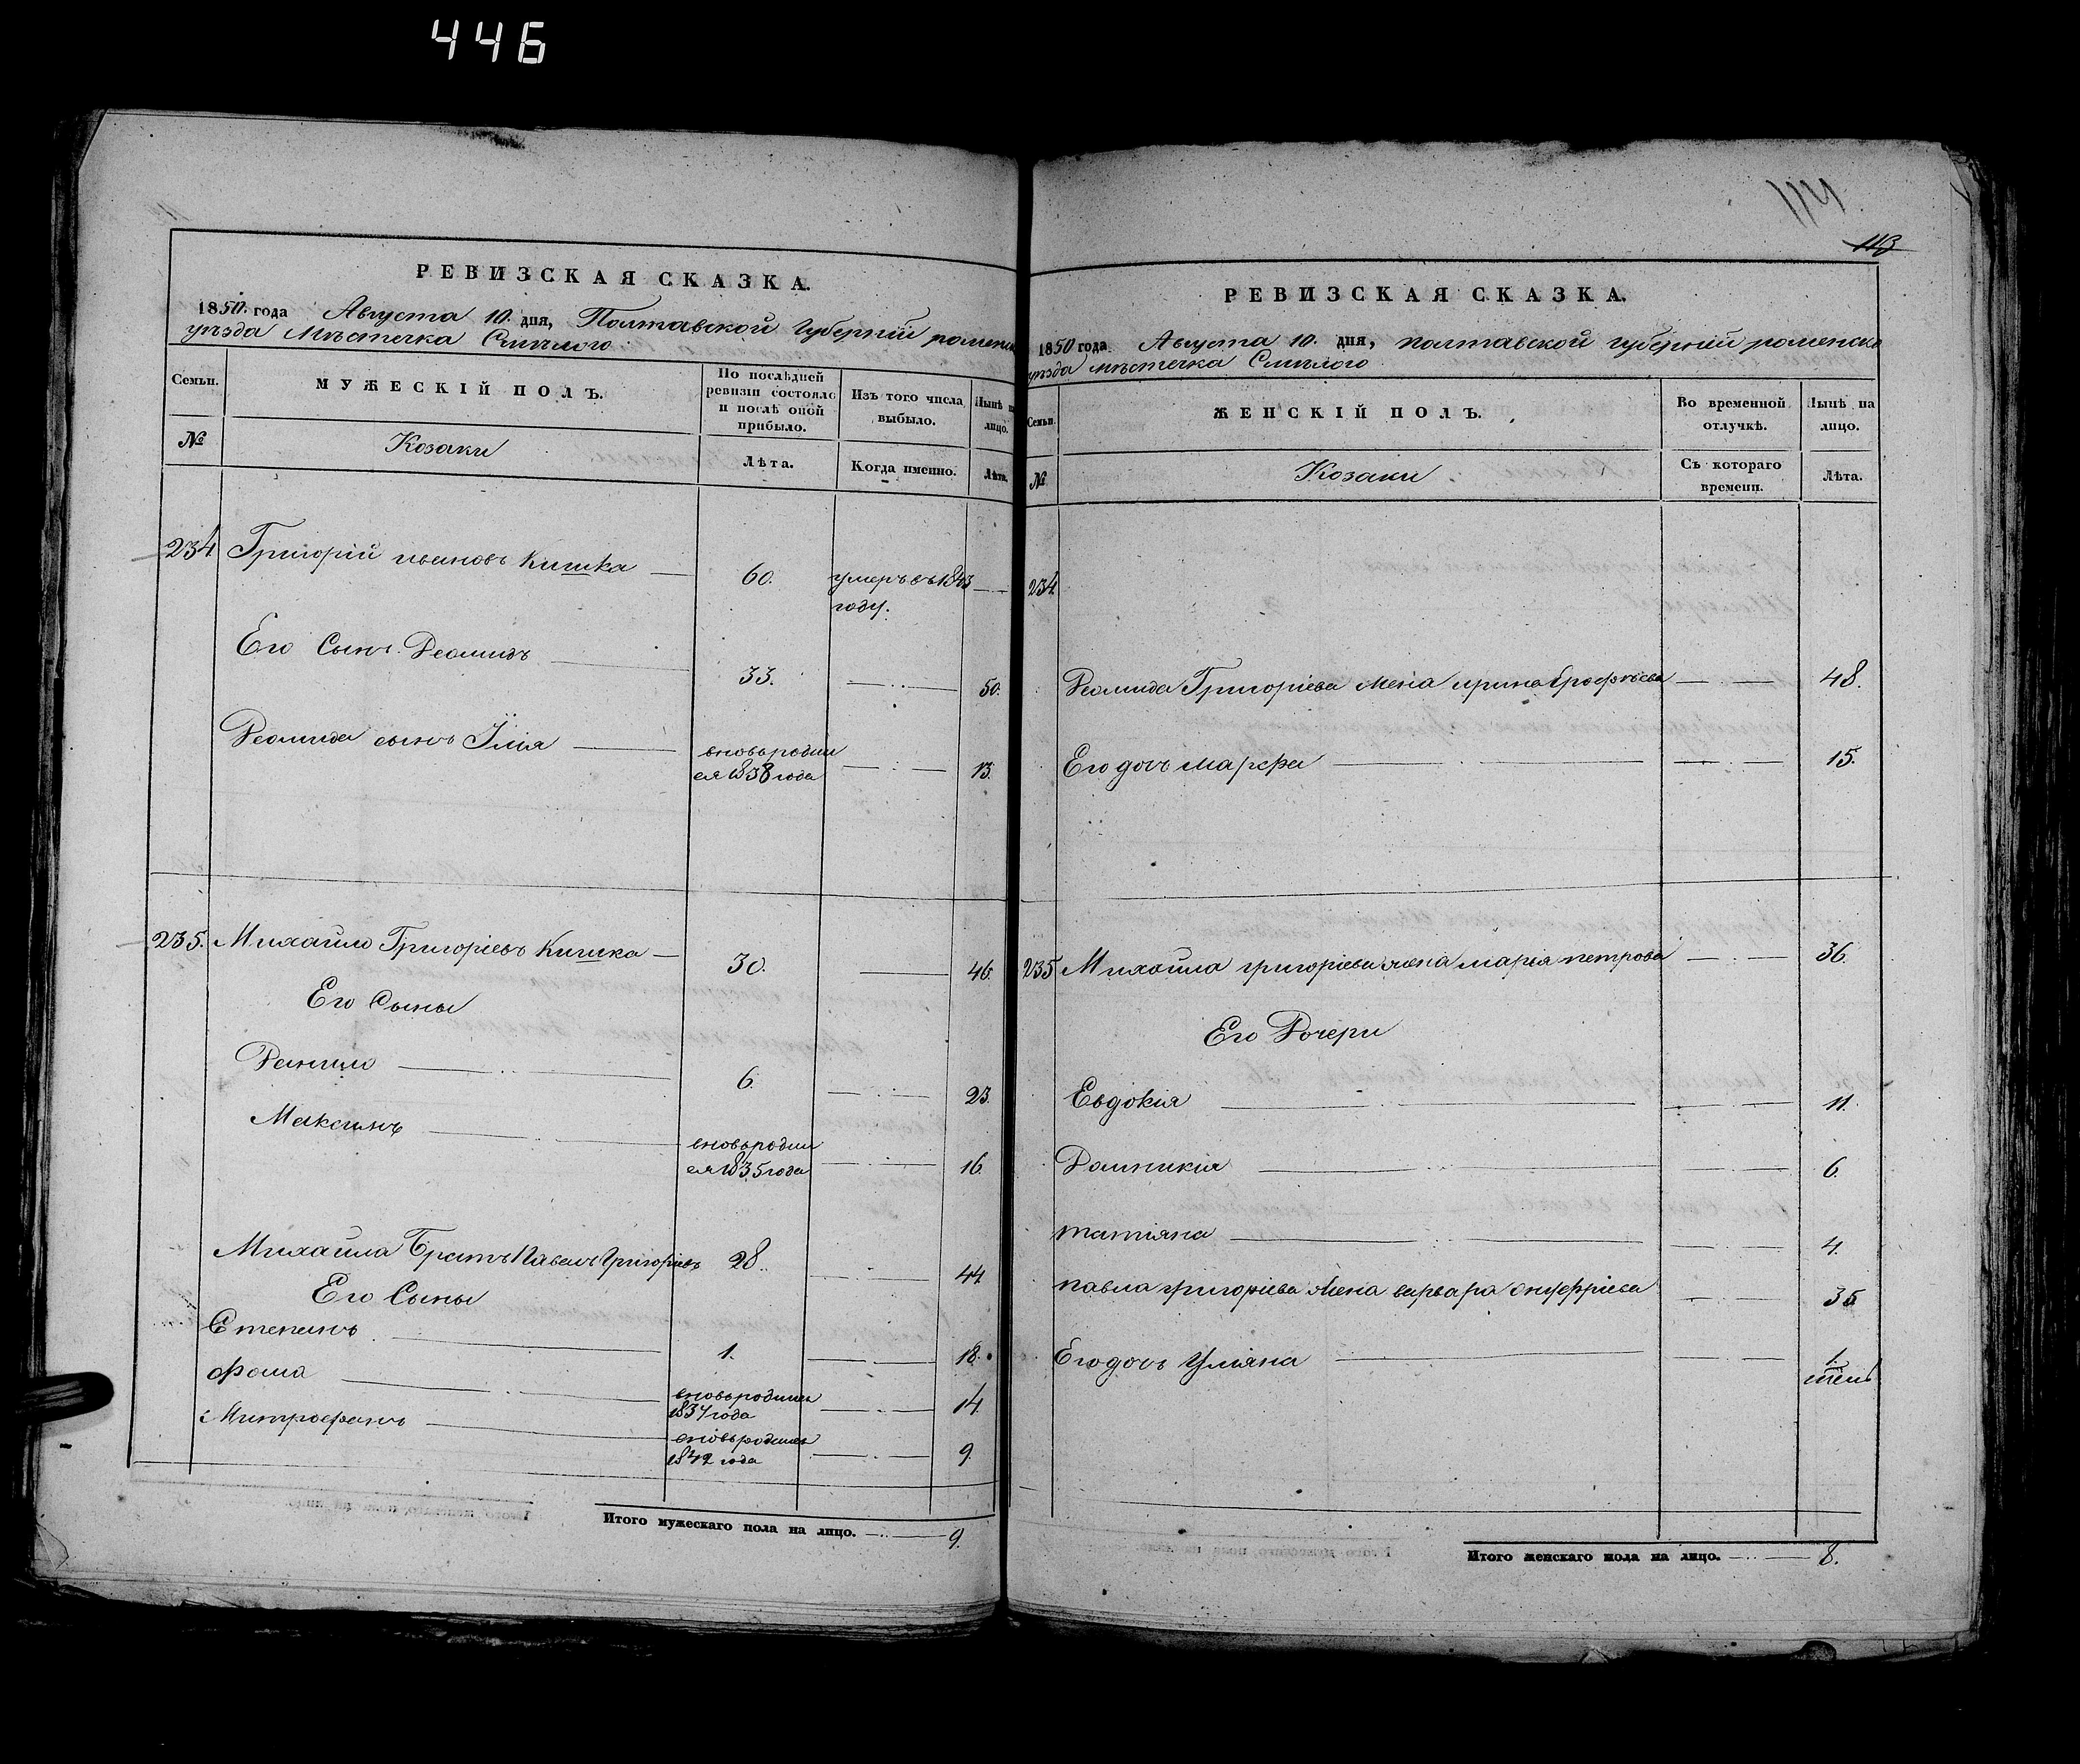 446
РЕВИЗСКАЯ СКАЗКА.
1850 года Августа 10. дня, Полтавской Губернiй роменск
уѣзда Мѣстечка Смѣлого
Семьи.
МУЖЕСКІЙ ПОЛЪ.
По послѣдней ревизіи состояло и послѣ оной прибыло.
Изъ того числа выбыло.
Нынѣ на лицо.
№
Козаки
Лѣта.
Когда именно.
Лѣта.
234. Григорiй ивановъ Кишка — 60. умеръ въ 1843 году. —
Его Сынъ Деомидъ — 33. — 50.
Деомида сынъ Iлiя — вновьродил ся 1838 года — 13.
235. Михайло Григорiевъ Кишка — 30. — 46.
Его Сыны
Данило — 6. — 23.
Максимъ — вновьродил ся 1835 года — 16
Михайла Братъ Павелъ Григорiевъ 28. — 44.
Его Сыны
Степанъ — 1. — 18.
Фома — вновьродился 1837 года — 14.
Митрофанъ — вновьродился 1842 года — 9.
Итого мужескаго пола на лицо. — 9.
114
113
РЕВИЗСКАЯ СКАЗКА.
1850 года Августа 10. дня, полтавской губернiй роменско
уѣзда мѣстечка Смѣлого
Семьи.
ЖЕНСКІЙ ПОЛЪ.
Во временной отлучкѣ.
Нынѣ на лицо.
№
Козаки
Съ котораго времени.
Лѣта.
234.
Деомида Григорiева жена ирина Ерофѣева — 48.
Его дочъ марфа — 15.
235 Михайла григорiева жена марiя петрова — 36.
Его Дочери
Евдокiя — 11.
Домникiя — 6.
татiяна — 4.
павла григорiева жена варвара онуфрiева — 35
Его дочъ Улiяна — 1.
Итого женскаго пола на лицо. — 8.